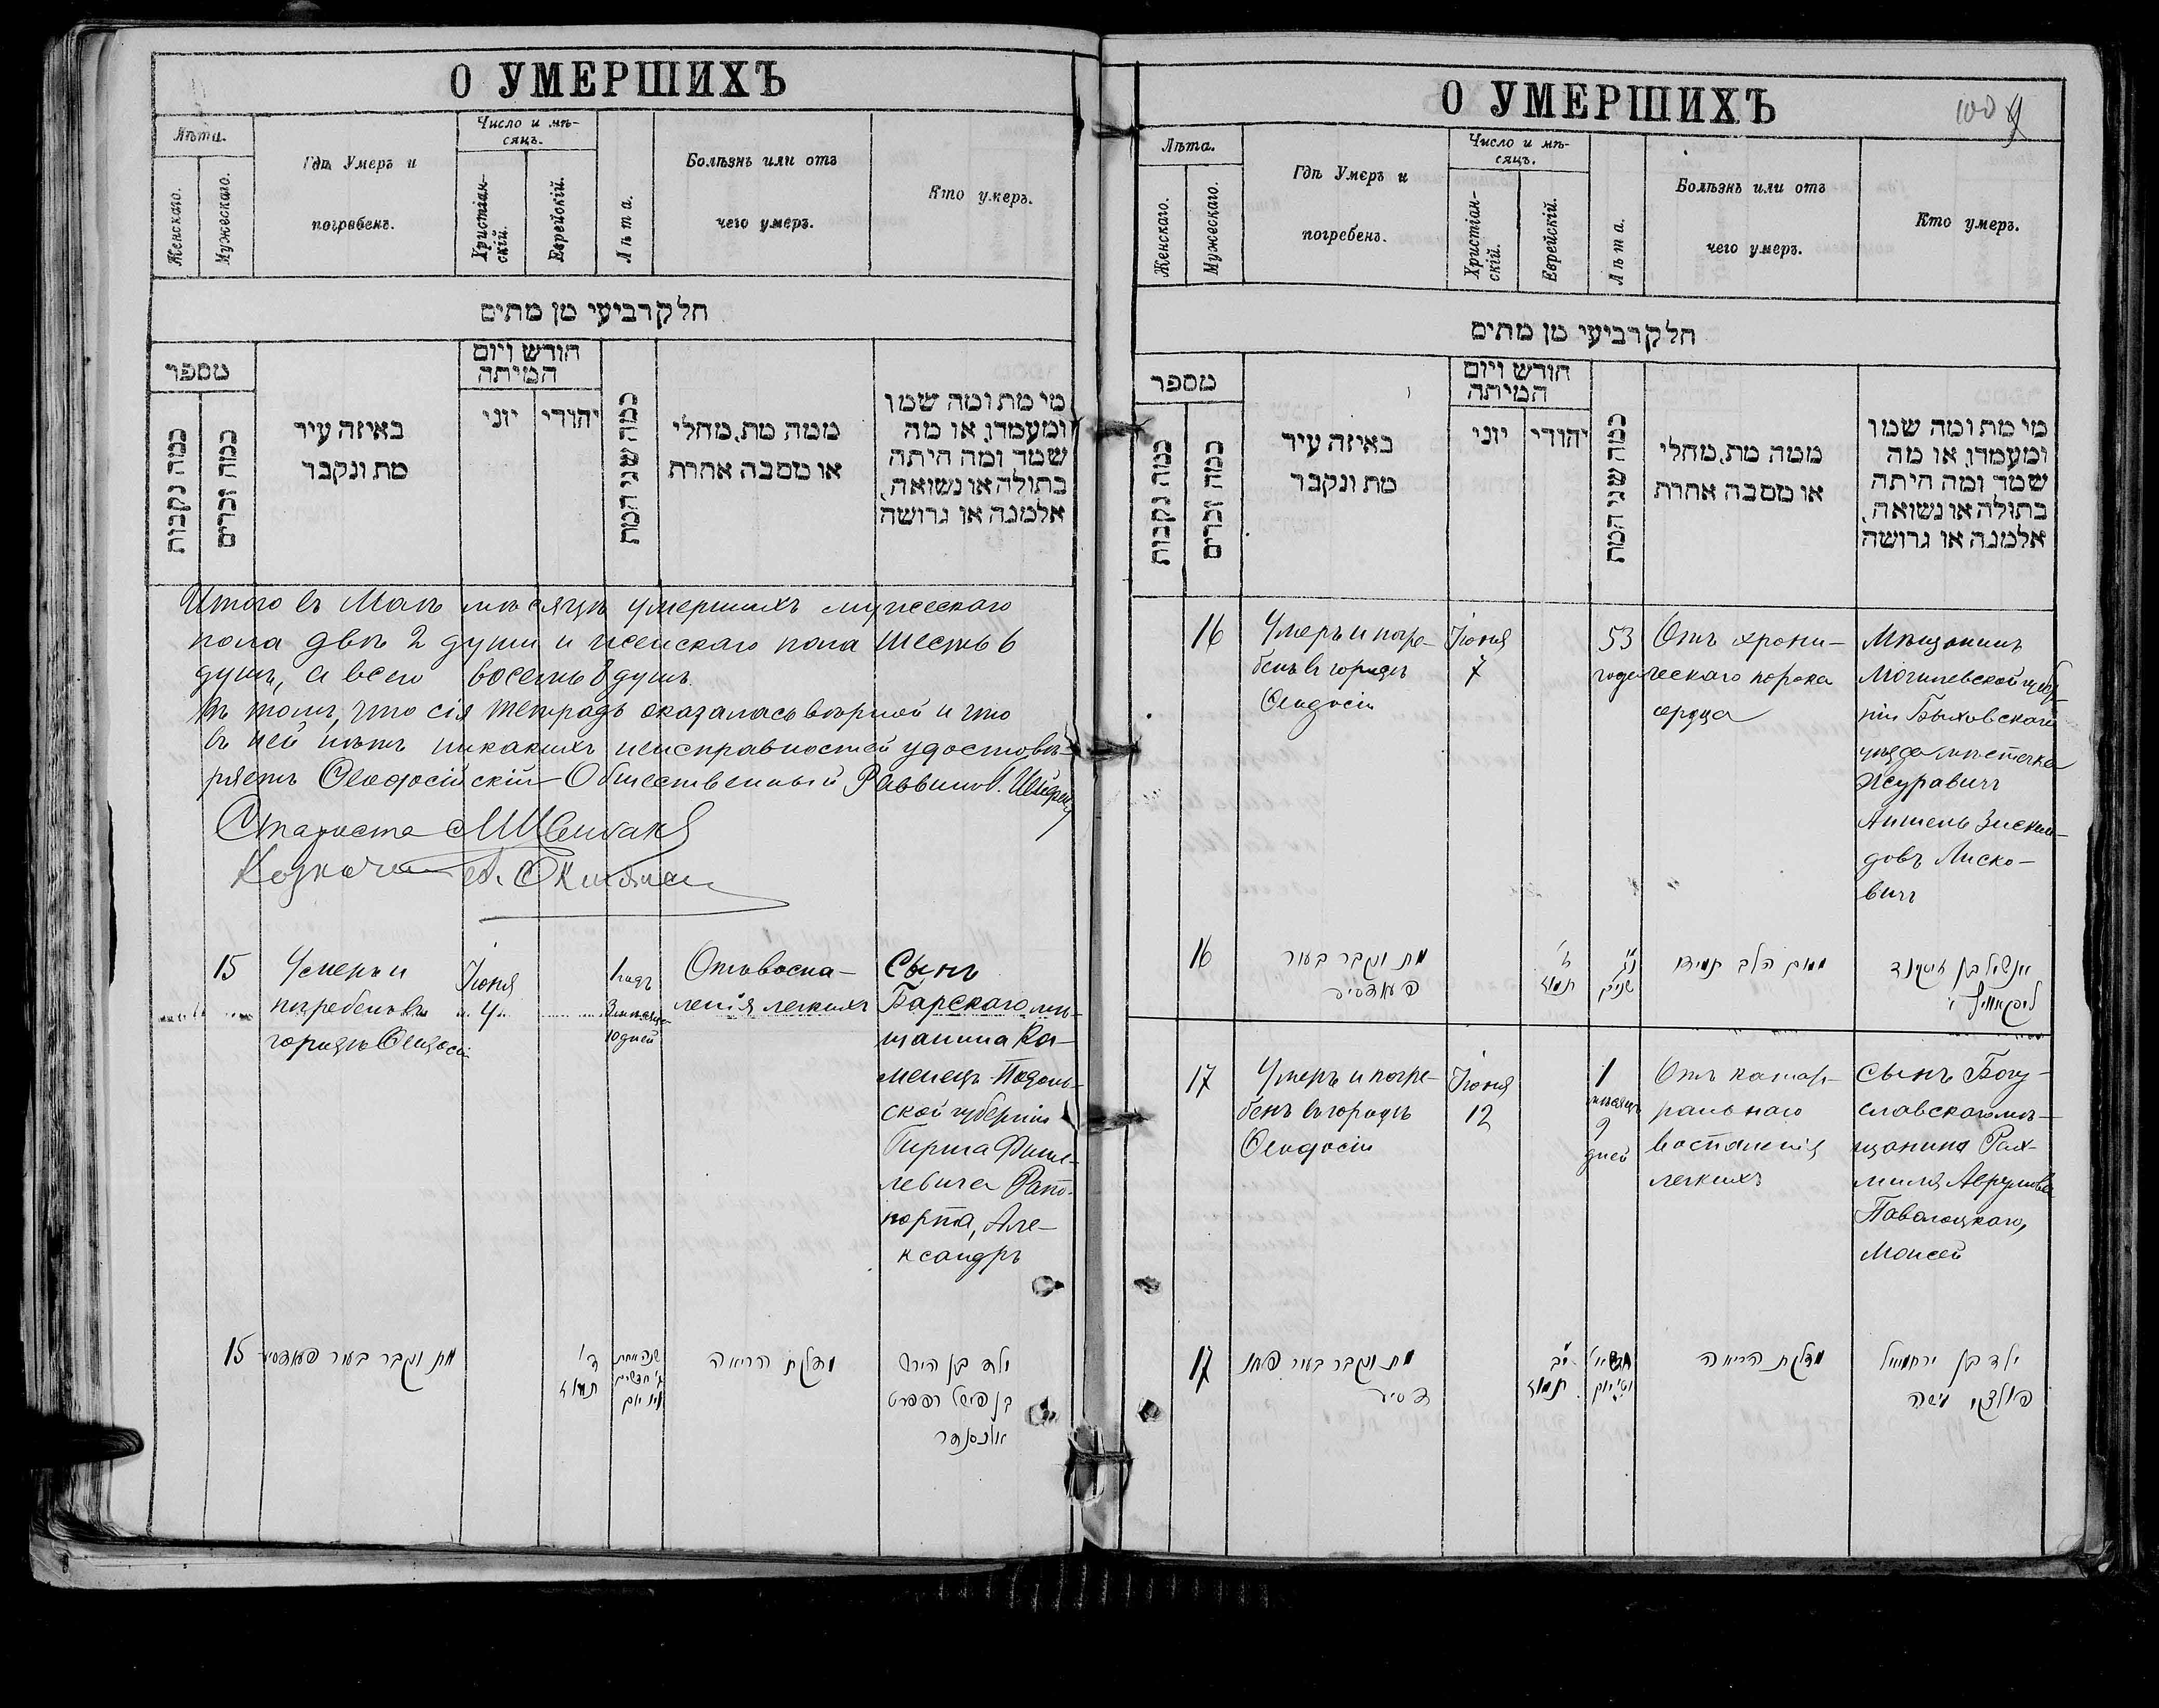 О УМЕРШИХЪ
Лѣта.
Женскаго.
Мужескаго.
Гдѣ Умеръ и
погребенъ.
Число и мѣ-
сяцъ.
Христіан-
скій.
Еврейскій.
Лѣта.
Болѣзнь или отъ
чего умеръ.
Кто умеръ.
חלק רביעי מן מתים
מספר
כמה נקבות
כמה זכרים
באיזה עיר
מת ונקבר
חודש ויום
המיתה
יוני
יהודי
כמה שני המת
ממה מת, מחלי
או מסבה אחרת
מי מת ומה שמו
ומעמדו, או מה
שמה ומה היתה
בתולה או נשואה,
אלמנה או גרושה
Итого въ Маѣ мѣсяцѣ умершихъ мужескаго
пола двѣ 2 души и женскаго пола шесть 6
душъ, а всего восемь 8 душъ.
Въ томъ, что сія тетрадь оказалась вѣрной и что
въ ней нѣтъ никакихъ неисправностей удостовѣ-
ряетъ Ѳеодосійскій Общественный Раввинъ
Староста
Казначей
15
Умеръ и
погребенъ въ
городѣ Ѳеодосіи
Іюня
4
1 годъ
3 мѣсяца
10 дней
Отъ воспа-
ленія легкихъ
Сынъ
Барскаго мѣ-
щанина Ка-
менецъ-Подоль-
ской губерніи
Гирша Фише-
левича Рапо-
порта, Але-
ксандръ
15
מת ונקבר בעיר פעאדסיע
ד'
תמוז
שנה אחת
ג' חדשים
יום
מדלקת הריאה
ילד בן הירש
בן פישל רפפרט
אלכסנדר
О УМЕРШИХЪ
100
Лѣта.
Женскаго.
Мужескаго.
Гдѣ Умеръ и
погребенъ.
Число и мѣ-
сяцъ.
Христіан-
скій.
Еврейскій.
Лѣта.
Болѣзнь или отъ
чего умеръ.
Кто умеръ.
חלק רביעי מן מתים
מספר
כמה נקבות
כמה זכרים
באיזה עיר
מת ונקבר
חודש ויום
המיתה
יוני
יהודי
כמה שני המת
ממה מת, מחלי
או מסבה אחרת
מי מת ומה שמו
ומעמדו, או מה
שמה ומה היתה
בתולה או נשואה,
אלמנה או גרושה
16
Умеръ и погре-
бенъ въ городѣ
Ѳеодосіи
Іюня
7
53
года
Отъ хрони-
ческаго порока
сердца
Мѣщанинъ
Могилевской губер-
ніи Быховскаго
уѣзда мѣстечка
Журавичъ
Аншель Зискин-
довъ Лиско-
вичъ
16
מת ונקבר בעיר
פעאדסיע
ז'
תמוז
נג
שנים
הלב תמידי
אנשיל בן זיסקינד
ליסקאוויץ
17
Умеръ и погре-
бенъ въ городѣ
Ѳеодосіи
Іюня
12
1
мѣсяцъ
9
дней
Отъ катар-
ральнаго
воспаленія
легкихъ
Сынъ Богу-
славскаго мѣ-
щанина Рах-
миля Аврумова
Паволоцкаго,
Моисей
17
מת ונקבר בעיר פעאו
דסיע
יב
תמוז
יום
מדלקת הריאה
ילד בן ירחמיאל
משה